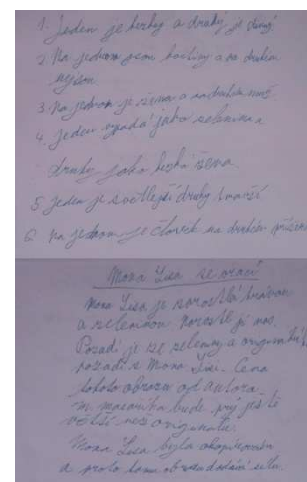 1. Jeden je hezký a druhý je divný
2. Na jednom jsou květiny a na druhém
nejsou
3. Na jednom je žena a na druhém muž
4. Jeden vypadá jako zelenina a
druhý jako hezká žena
5. Jeden je světlejší druhý tmavší
6. na jednom je člověk na druhém příšera
Mona Lisa se vrací
Mona Lisa je srostlá
a zeleninou. Narostl jí nos.
Pozadí je ze zeleniny a
pozadí s Mona Lisi. Cena
tohoto obrazu od autora
m. bude prý ještě
větší než originálu.
Mona Lisa byla
a proto tomu obrazu dodává sílu.